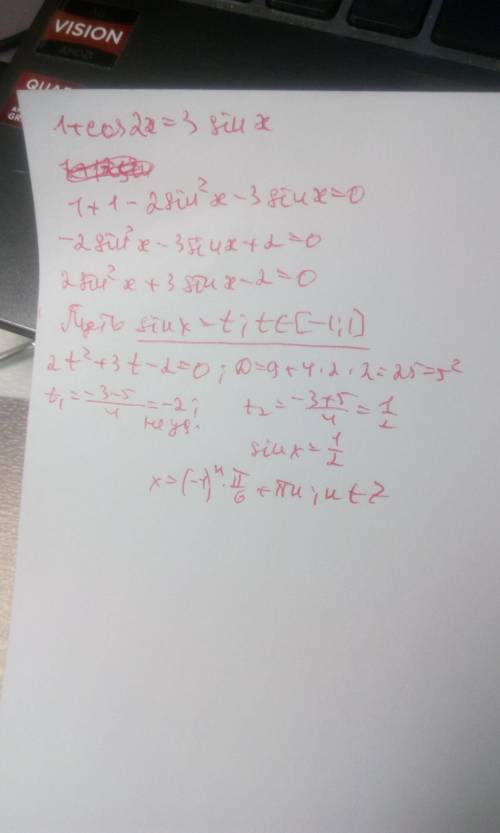 VISION
AMD
QUAD
1+cos2x=3 sin x
1+1-2sin²x-3sinx=0
-2sin²x-3sinx+2=0
2sin²x+3sinx-2=0
Пусть sinx=t; t∈[-1;1]
2t²+3t-2=0; D=9+4·2·2=25=5²
t₁=\frac{-3-5}{4}=-2; t₂=\frac{-3+5}{4}=\frac{1}{2}
не уд.
sinx=\frac{1}{2}
x=(-1)ⁿ·\frac{π}{6}+πn; n∈Z